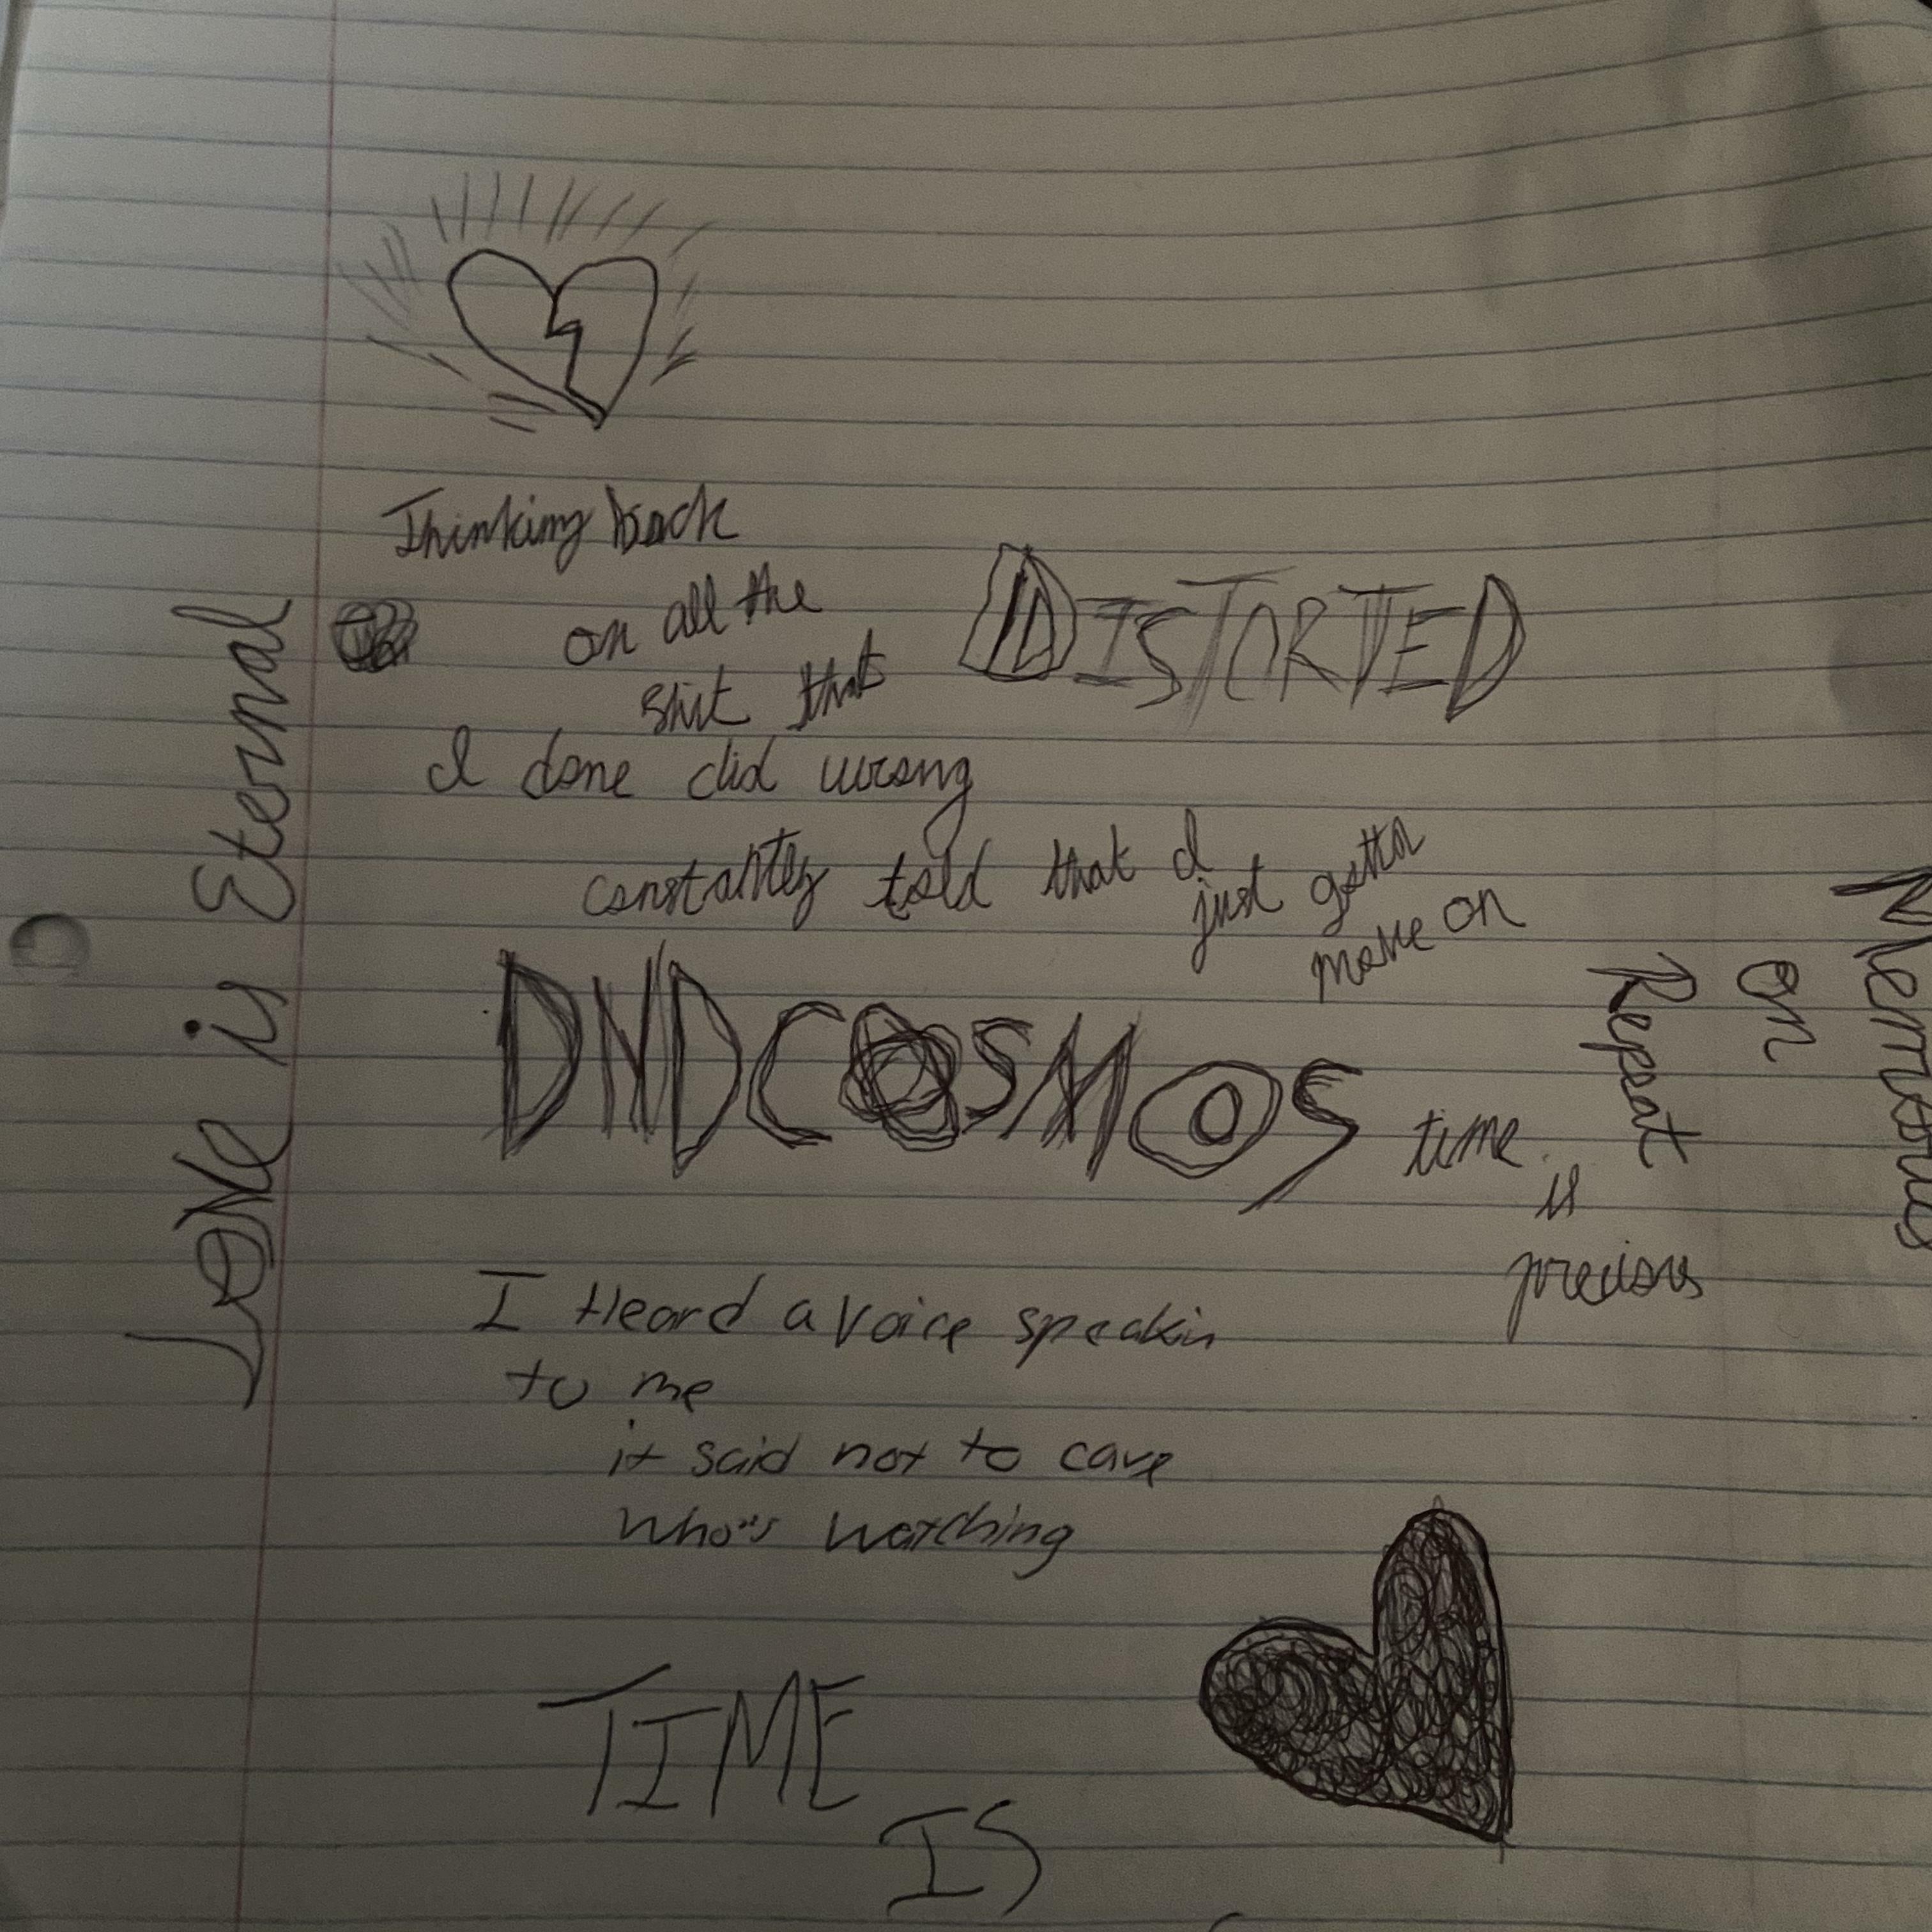 Thinking back
on all the
shit that
DISTORTED
I done did wrong
constantly told that I
just gotta
move on
LOVE is Eternal
DNDCOSMOS
time is
precious
Memories
on
Repeat
I Heard a voice speakin
to me
it said not to care
who's watching
TIME
IS